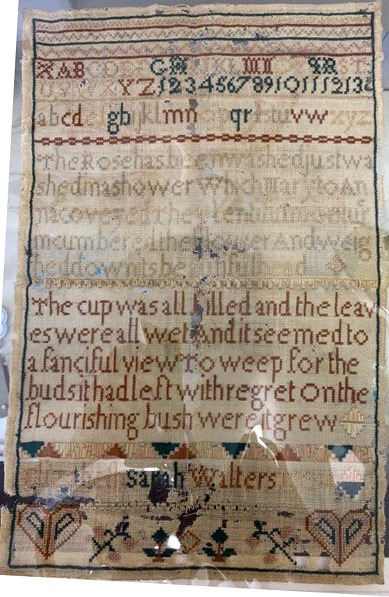 XAB GH KL MN QR ST
XYZ 12345678910111213
abcd gh jkl mn qr tuvwxyz
The Rose has been washed just wa
shed in a shower Which Mary to An
na covered The plentiful moistur
incumbered the flower And weig
hed down its beautiful head
The cup was all filled and the leav
es were all wet And it seemed to
a fanciful view To weep for the
buds it had left with regret On the
flourishing bush were it grew
Sarah Walters